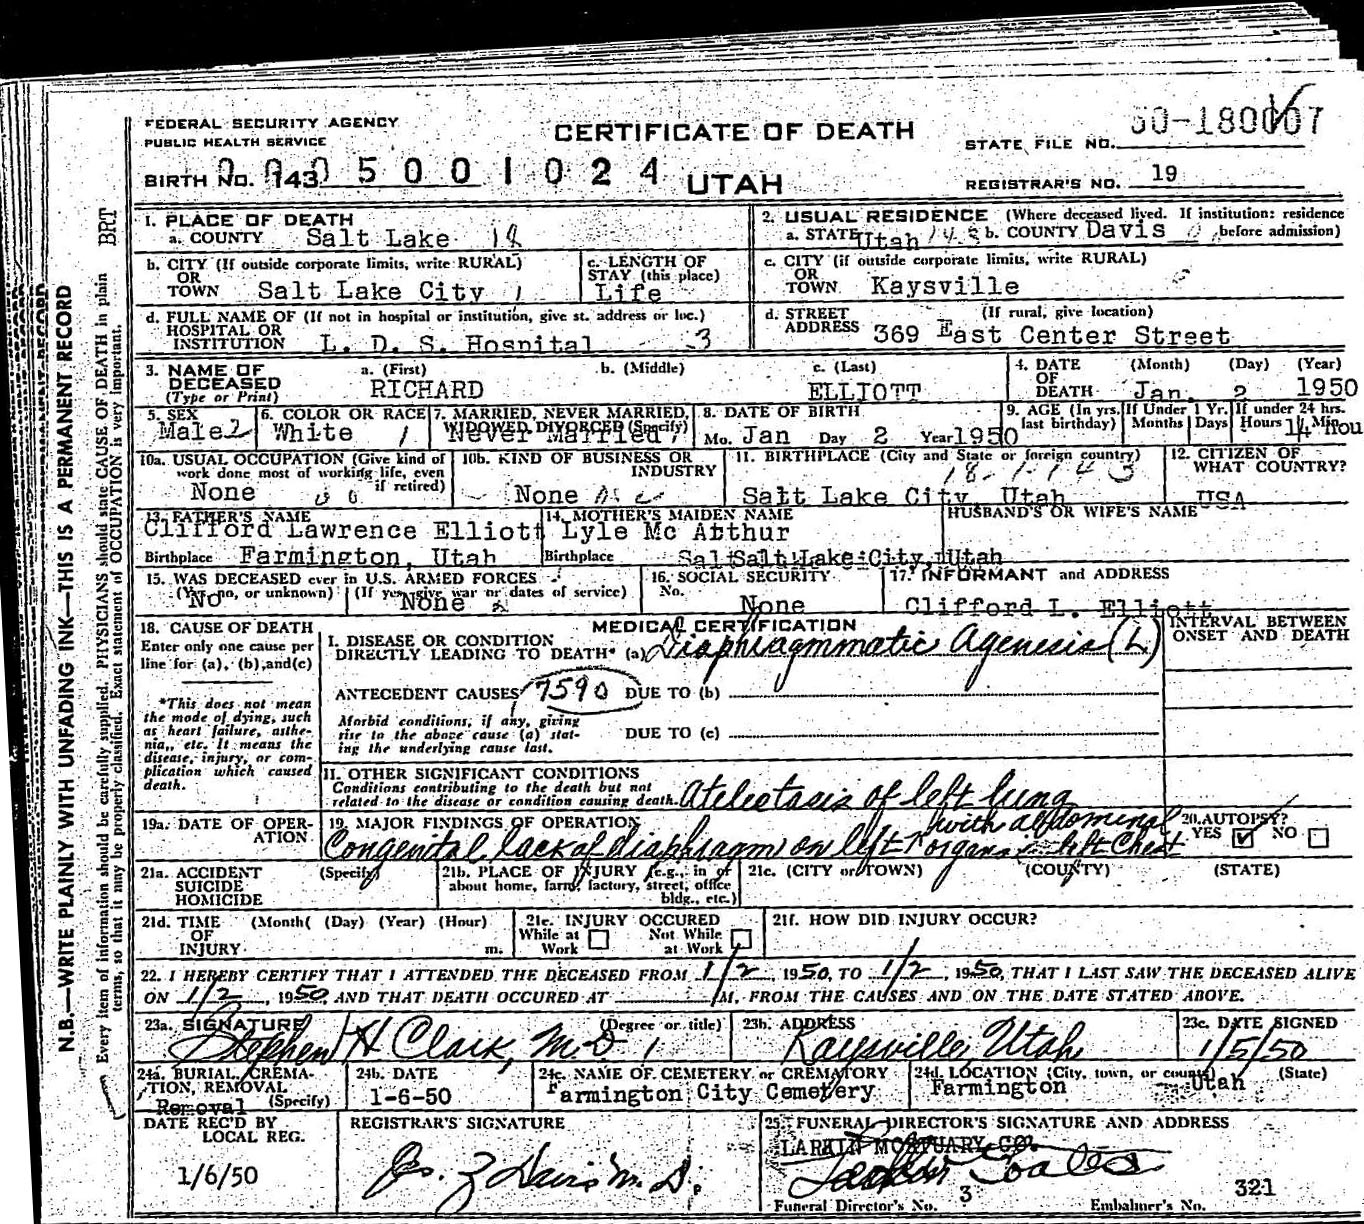 FEDERAL SECURITY AGENCY
PUBLIC HEALTH SERVICE
CERTIFICATE OF DEATH
UTAH
STATE FILE NO. 50-180007
BIRTH NO. 143 5 0 0 1 0 2 4
REGISTRAR'S NO. 19
N.B.—WRITE PLAINLY WITH UNFADING INK—THIS IS A PERMANENT RECORD
Every item of information should be carefully supplied. PHYSICIANS should state CAUSE OF DEATH in plain
terms, so that it may be properly classified. Exact statement of OCCUPATION is very important.
BRT
1. PLACE OF DEATH
a. COUNTY Salt Lake 18
2. USUAL RESIDENCE (Where deceased lived. If institution: residence
a. STATE Utah b. COUNTY Davis before admission)
b. CITY (If outside corporate limits, write RURAL)
OR
TOWN Salt Lake City 1
c. LENGTH OF
STAY (this place)
Life
c. CITY (if outside corporate limits, write RURAL)
OR
TOWN Kaysville
d. FULL NAME OF (If not in hospital or institution, give st. address or loc.)
HOSPITAL OR
INSTITUTION L. D. S. Hospital 3
d. STREET (If rural, give location)
ADDRESS 369 East Center Street
3. NAME OF
DECEASED
(Type or Print)
a. (First) b. (Middle) c. (Last)
RICHARD ELLIOTT
4. DATE (Month) (Day) (Year)
OF
DEATH Jan. 2 1950
5. SEX
Male 2
6. COLOR OR RACE
White 1
7. MARRIED, NEVER MARRIED,
WIDOWED, DIVORCED (Specify)
Never Married
8. DATE OF BIRTH
Mo. Jan Day 2 Year 1950
9. AGE (In yrs.
last birthday)
If Under 1 Yr.
Months Days
If under 24 hrs.
Hours Min.
14 Hou
10a. USUAL OCCUPATION (Give kind of
work done most of working life, even
if retired)
None
10b. KIND OF BUSINESS OR
INDUSTRY
None
11. BIRTHPLACE (City and State or foreign country)
18-1-143
Salt Lake City, Utah
12. CITIZEN OF
WHAT COUNTRY?
USA
13. FATHER'S NAME
Clifford Lawrence Elliott
Birthplace Farmington, Utah
14. MOTHER'S MAIDEN NAME
Lyle Mc Atthur
Birthplace SalSalt Lake City, Utah
HUSBAND'S OR WIFE'S NAME
15. WAS DECEASED ever in U.S. ARMED FORCES
(Yes, no, or unknown) (If yes, give war or dates of service)
No None
16. SOCIAL SECURITY
No. None
17. INFORMANT and ADDRESS
Clifford L. Elliott
18. CAUSE OF DEATH
Enter only one cause per
line for (a), (b), and (c)
*This does not mean
the mode of dying, such
as heart failure, asthe-
nia, etc. It means the
disease, injury, or com-
plication which caused
death.
MEDICAL CERTIFICATION
INTERVAL BETWEEN
ONSET AND DEATH
I. DISEASE OR CONDITION
DIRECTLY LEADING TO DEATH* (a) Diaphragmmatic Agenesis (L)
ANTECEDENT CAUSES 7590 DUE TO (b)
Morbid conditions, if any, giving
rise to the above cause (a) stat-
ing the underlying cause last.
DUE TO (c)
II. OTHER SIGNIFICANT CONDITIONS
Conditions contributing to the death but not
related to the disease or condition causing death. Atelectasis of left lung
19a. DATE OF OPER-
ATION
19. MAJOR FINDINGS OF OPERATION
Congenital lack of diaphragm on left with abdominal
organs left chest
20. AUTOPSY?
YES ☑ NO ☐
21a. ACCIDENT (Specify)
SUICIDE
HOMICIDE
21b. PLACE OF INJURY (e.g., in or
about home, farm, factory, street, office
bldg., etc.)
21c. (CITY or TOWN) (COUNTY) (STATE)
21d. TIME (Month( (Day) (Year) (Hour)
OF
INJURY m.
21e. INJURY OCCURED
While at Work ☐ Not While at Work ☐
21f. HOW DID INJURY OCCUR?
22. I HEREBY CERTIFY THAT I ATTENDED THE DECEASED FROM 1/2, 1950, TO 1/2, 1950, THAT I LAST SAW THE DECEASED ALIVE
ON 1/2, 1950, AND THAT DEATH OCCURED AT M., FROM THE CAUSES AND ON THE DATE STATED ABOVE.
23a. SIGNATURE (Degree or title)
Stephen H Clark, M.D 1
23b. ADDRESS
Kaysville, Utah
23c. DATE SIGNED
1/5/50
24a. BURIAL, CREMA-
TION, REMOVAL
(Specify)
Removal
24b. DATE
1-6-50
24c. NAME OF CEMETERY or CREMATORY
Farmington City Cemetery
24d. LOCATION (City, town, or county) (State)
Farmington Utah
DATE REC'D BY
LOCAL REG.
1/6/50
REGISTRAR'S SIGNATURE
25. FUNERAL DIRECTOR'S SIGNATURE AND ADDRESS
LARKIN MORTUARY CO.
Funeral Director's No. 3 Embalmer's No. 321